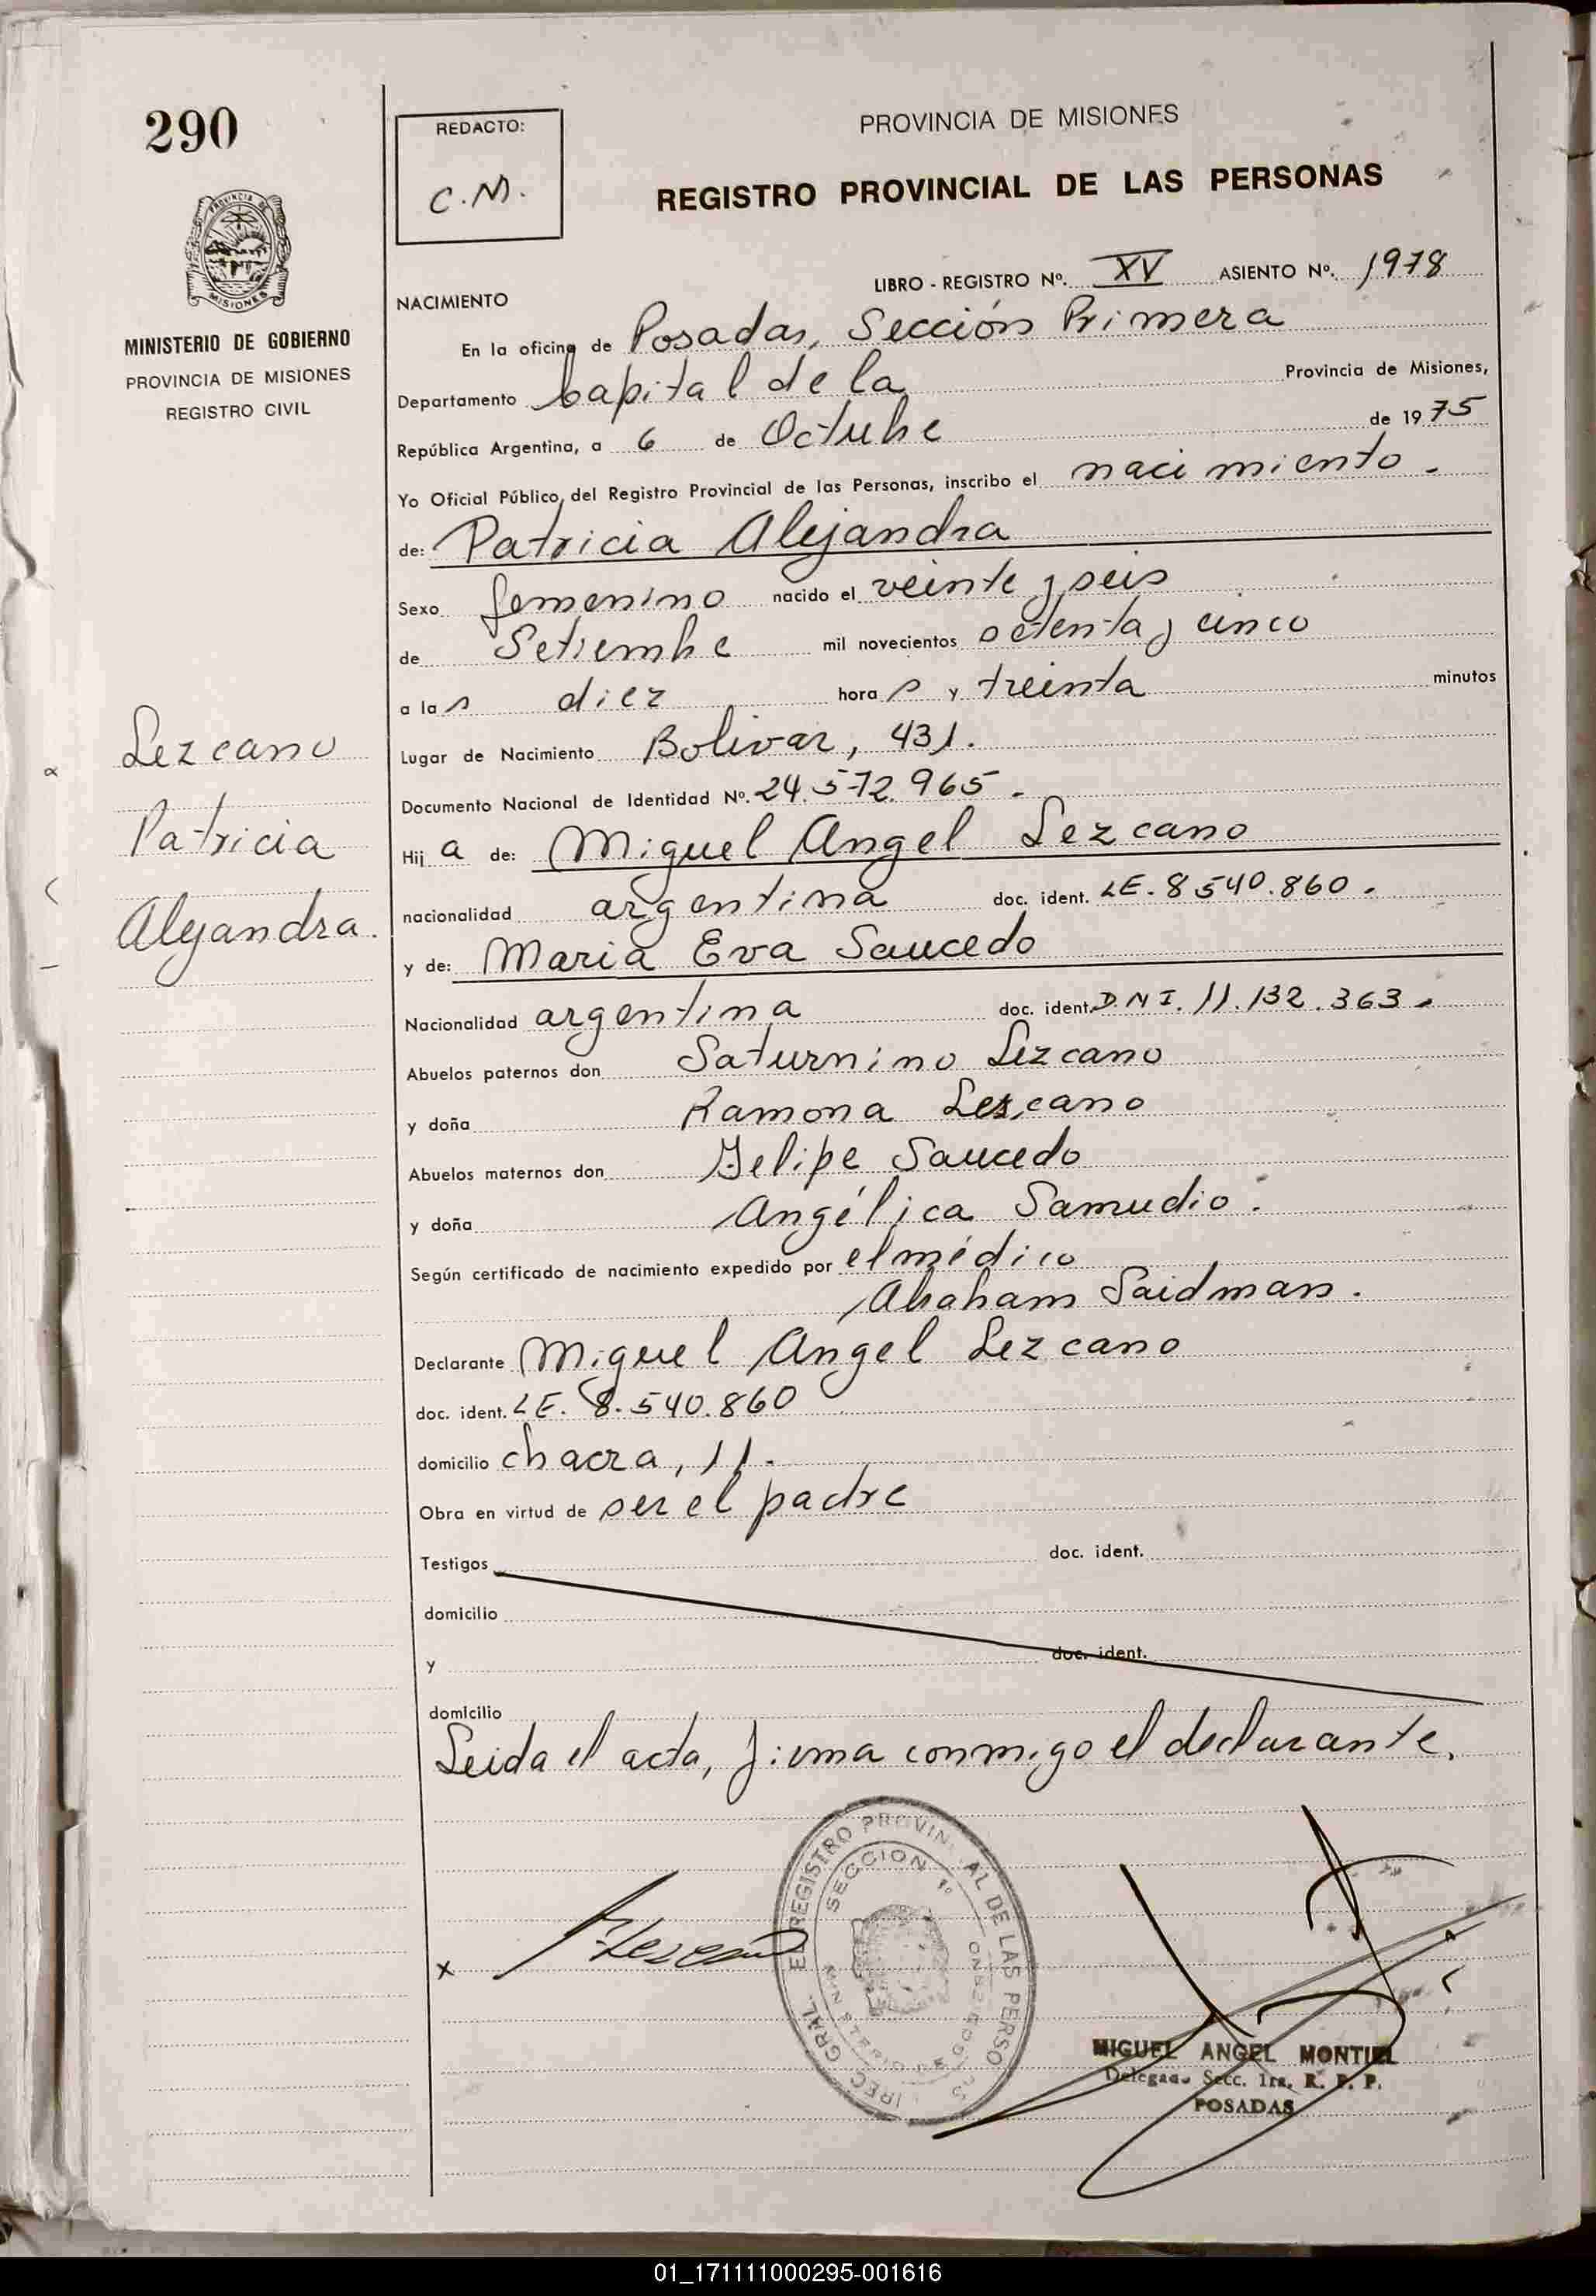 290
REDACTO:
C.M.
PROVINCIA DE MISIONES
REGISTRO PROVINCIAL DE LAS PERSONAS
MINISTERIO DE GOBIERNO
PROVINCIA DE MISIONES
REGISTRO CIVIL
LIBRO - REGISTRO Nº. XV ASIENTO Nº. 1978
NACIMIENTO
En la oficina de Posadas, Sección Primera
Departamento Capital de la Provincia de Misiones,
República Argentina, a 6 de Octubre de 1975
Yo Oficial Público, del Registro Provincial de las Personas, inscribo el nacimiento.
de: Patricia Alejandra
Sexo femenino nacido el veinte y seis
de Setiembre mil novecientos setenta y cinco
a las diez horas y treinta minutos
Lugar de Nacimiento Bolivar, 431.
Documento Nacional de Identidad Nº. 24.572.965.
Hija de: Miguel Angel Lezcano
nacionalidad argentina doc. ident. LE. 8540.860.
y de: Maria Eva Saucedo
Nacionalidad argentina doc. ident. D.N I. 11.132.363.
Abuelos paternos don Saturnino Lezcano
y doña Ramona Lezcano
Abuelos maternos don Felipe Saucedo
y doña Angélica Samudio.
Según certificado de nacimiento expedido por el médico
Abraham Saidman.
Declarante Miguel Angel Lezcano
doc. ident. LE. 8.540.860
domicilio chacra, 11.
Obra en virtud de ser el padre
Testigos doc. ident.
domicilio
y doc. ident.
domicilio
Leida el acta, firma conmigo el declarante.
Lezcano
Patricia
Alejandra.
x
REGISTRO PROVIN AL DE LAS PERSO
SECCION 1º
MIGUEL ANGEL MONTIEL
Delegado Secc. 1ra. R. P. P.
POSADAS
01_171111000295-001616